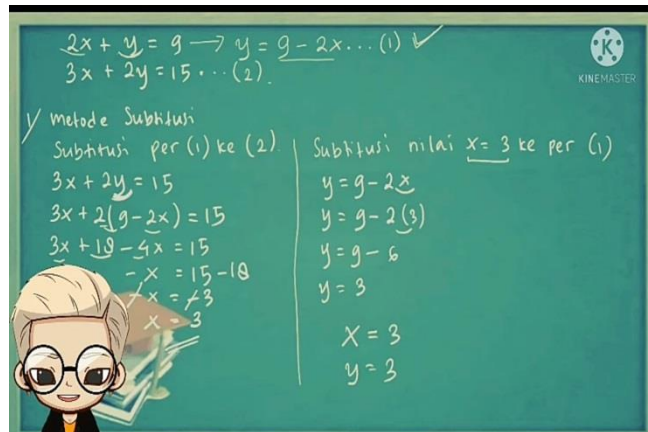 2x + y = 9 → y = 9 - 2x ... (1) ✓
3x + 2y = 15 ... (2).
KINEMASTER
Metode Subtitusi
Subtitusi per (1) ke (2).
3x + 2y = 15
3x + 2(9 - 2x) = 15
3x + 18 - 4x = 15
- x = 15 - 18
-x = -3
x = 3
Subtitusi nilai x = 3 ke per (1)
y = 9 - 2x
y = 9 - 2(3)
y = 9 - 6
y = 3
x = 3
y = 3